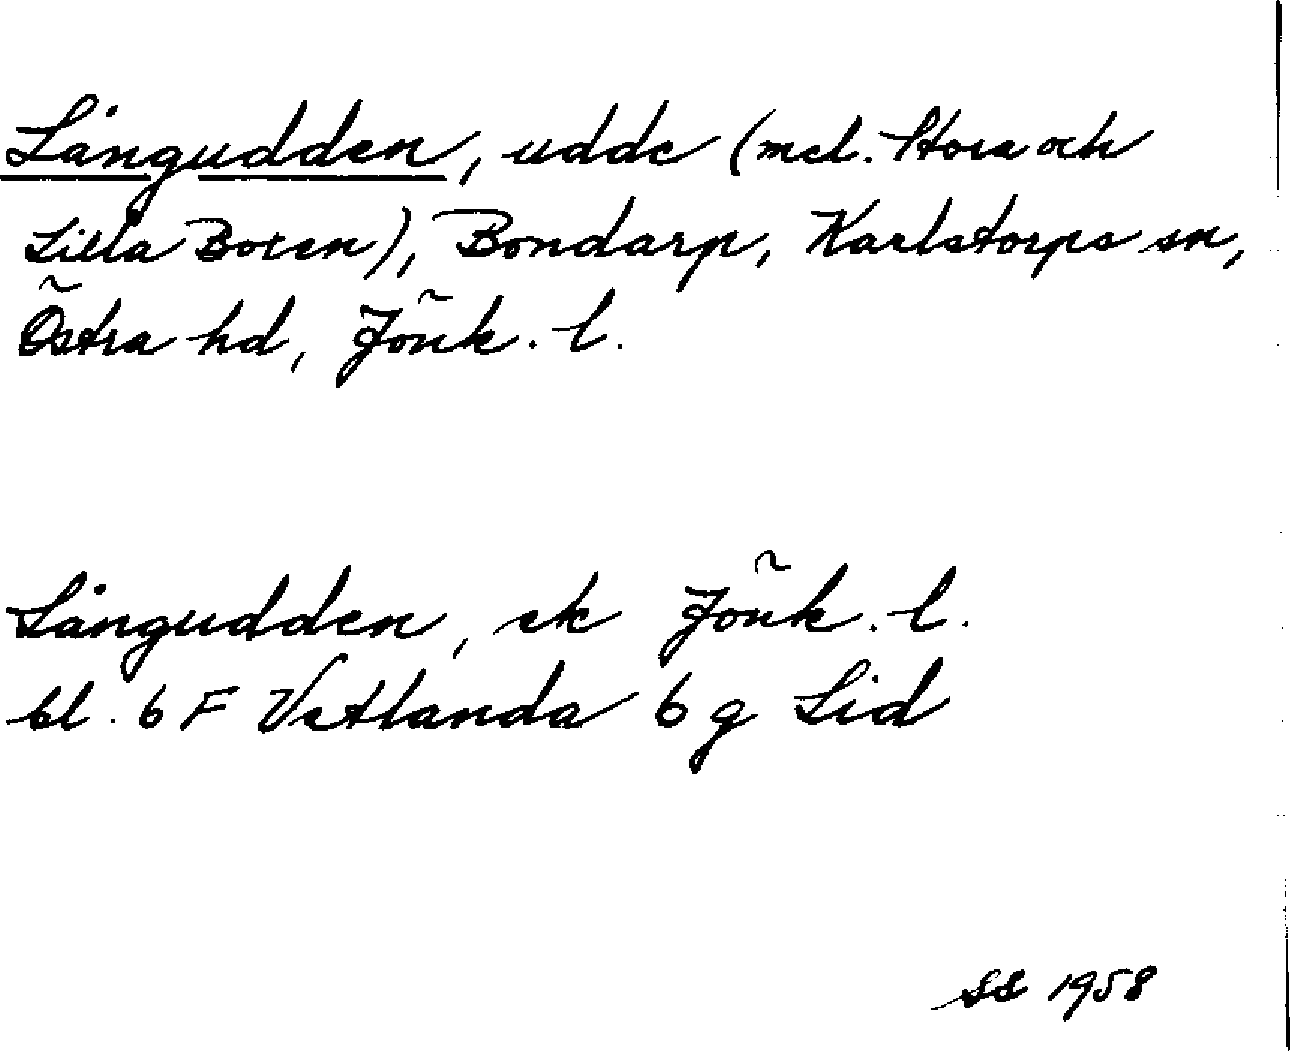 Långudden, udde (mel. Stora och
Lilla Boren), Bondarp, Karlstorps sn,
Östra hd, Jönk. l.
Långudden, ek Jönk. l.
bl. 6 F Vetlanda 6 g Lid
SS 1958